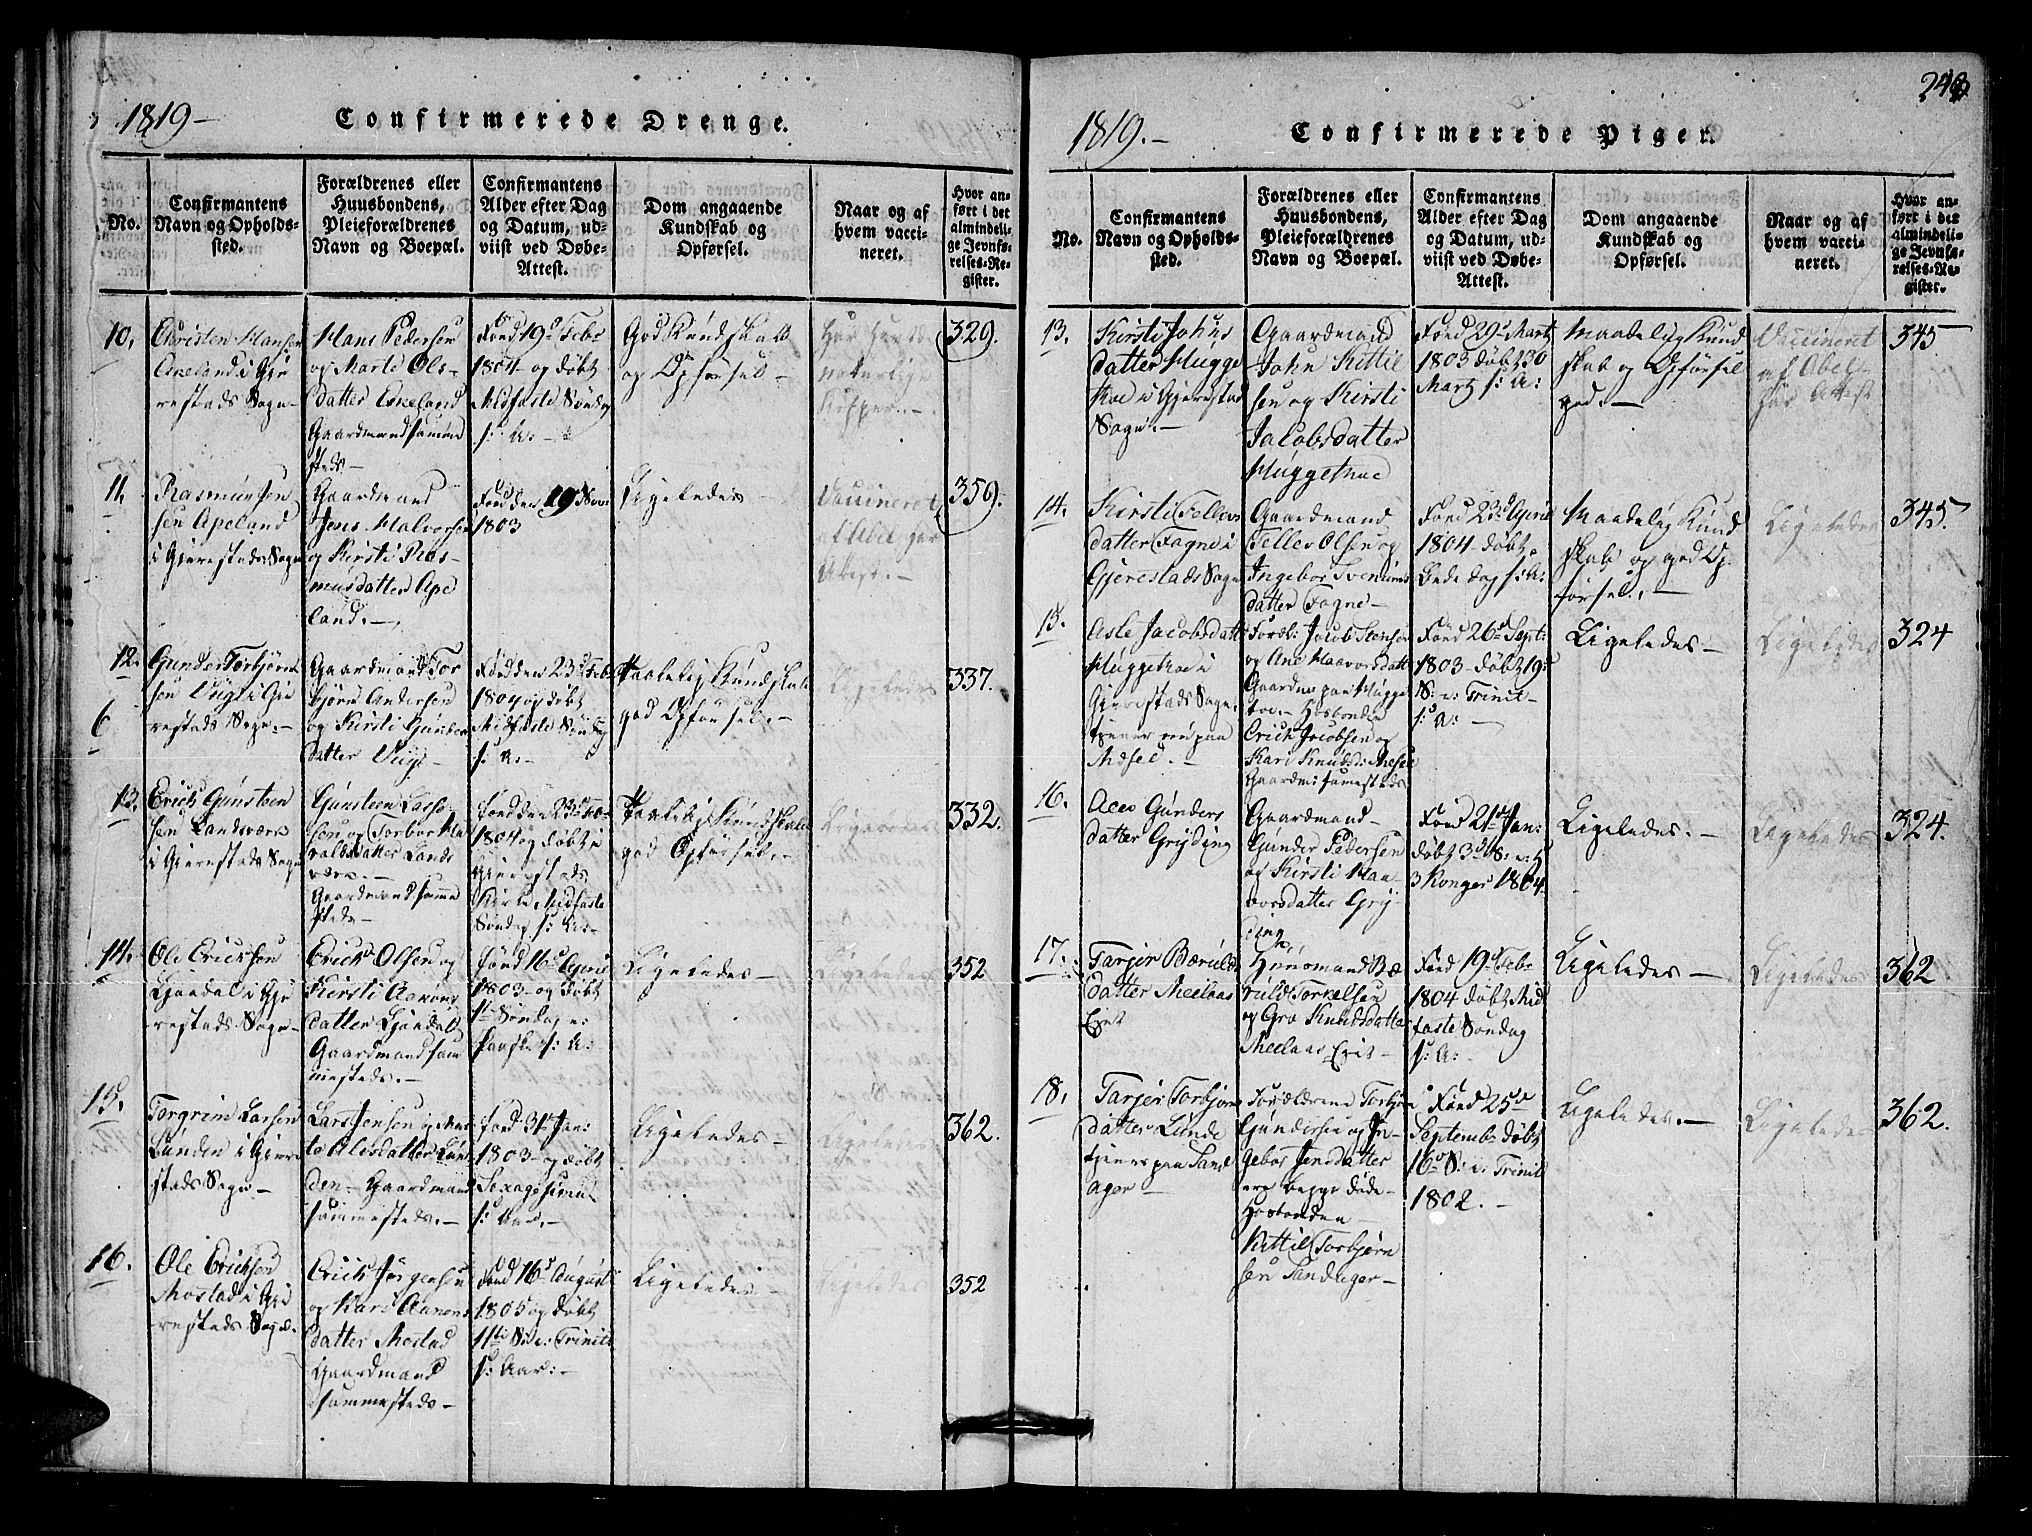 1819-
Confirmerede Drenge.
No.
Confirmantens
Navn og Opholds-
sted.
Forældrenes eller
Huusbondens,
Pleieforældrenes
Navn og Boepæl.
Confirmantens
Alder efter Dag
og Datum, ud-
viist ved Døbe-
Attest.
Dom angaaende
Kundskab og
Opførsel.
Naar og af
hvem vacci-
neret.
Hvor an-
ført i det
almindeli-
ge Jevnfø-
relses-Re-
gister.
10.
Christen Hansen
i Gje
restads Sogn-
Hans Pedersen
og Marte Ols-
datter Eskeland
Gaardmand samme
steds-
Fød 19d Febr
1804 og døbt
Midfaste Søndag
s: A: -
God Kundskab
og Opførsel-
naturlige
Kopper.-
329.
11.
Rasmus Jen
sen Apeland
i Gierestads Sogn
Gaardmand
Jens Halvorsen
og Kirsti Ras-
musdatter Ape
land.-
Fød den 19 Nov
1803
Ligeledes-
Vaccineret
Attest.-
359.
12.
Gunder Torbjørn
sen i Gie
restads Sogn.-
Gaardmand Tor
bjørn Andersen
og Kirsti Gunder
datter
Fød den 23d Feb
1804 og døbt
Midfaste Søndag
s: A:-
Taalelig Kundskab
god Opførsel.-
Ligeledes
337.
6
13.
Erich Gunsteen
sen Landsverk
i Gierestads Sogn
Gunsteen
sen og Torbør Ha
raldsdatter Lands
værk.-
Gaardmand samme
steds-
Fød den 23d
1804 og døbt i
Gierestads
Kirke Midfaste
Søndag s: A:-
Taalelig Kundskab
god Opførsel.-
Ligeledes
332.
14.
Ole Erichsen
i Gje
restads Sogn-
Erich Olsen og
Kirsti Aanons
datter
Gaardmand sam
mesteds.-
Fød 16d April
1803 og døbt
1ste Søndag e:
Paaske s: A:
Ligeledes-
Ligeledes
352
15.
Torgrim Larsen
Lunden i Giere
stads Sogn-
Lars Jensen og
datter Lun
den- Gaardmand
sammesteds.-
Fød 31d Jan:
1803 og døbt
Sexagesima
s: Aar.-
Ligeledes-
Ligeledes
362.
16.
Ole Erichsen
Mostad i Gje
restads Sogn.
Erich Jørgensen
og Kari Aanons
datter Mostad
Gaardmand
sammesteds-
Fød 16d August
1805 og døbt
11te S: e: Trinit:
s: Aar:-
Ligeledes-
Ligeledes
352
248
1819.-
Confirmerede Piger.
No.
Confirmantens
Navn og Opholds-
sted.
Forældrenes eller
Huusbondens,
Pleieforældrenes
Navn og Boepæl.
Confirmantens
Alder efter Dag
og Datum, ud-
viist ved Døbe-
Attest.
Dom angaaende
Kundskab og
Opførsel.
Naar og af
hvem vacci-
neret.
Hvor an-
ført i det
almindeli-
ge Jevnfø-
relses-Re-
gister.
13.
Kirsti Johns
datter Mygge
i Gjerestad
Sogn.-
Gaardmand
John Kittil
sen og Kirsti
Jacobsdatter
Fød 29d Marts
1803 døbt 30
Marts s: A:
Maadelig Kund
skab og Opførsel
god.-
Vaccineret
af
Attest
345
14.
Kirsti Tellevs
datter Fogne i
Gjerestads Sogn
Gaardmand
Tellev Olsen og
Ingebor
datter Fogne-
Fød 23d April
1804 døbt
Bededag s: A:
Maadelig Kund
skab og god Op
førsel.-
Ligeledes
345.
15.
Asle Jacobsdatt
i
Gierestads Sogn,
tjener nu paa
Foræl: Jacob Stensen
og Ane Haavorsdatt
Gaardm paa Mygge
- Hosbonden
Erich Jacobsen og
Kari Knuds:
Gaardm: sammesteds
Fød 26d Sept:
1803 døbt 19:
S: e: Trinit
s: A: -
Ligeledes-
Ligeledes
324
16.
Gunders
datter Gryding
Gaardmand-
Gunder Pedersen
og Kirsti Haa
vorsdatter Gry-
ding
Fød 21d Jan:
døbt 3d S: e: H
3 Konger 1804.
Ligeledes.-
Ligeledes
324.
17.
Tarjer Bærulds
datter Meelaas
Eiet
Huusmand Bæ
ruld Torkelsen
og Gro Knudsdatter
Meelaas Eiet-
Fød 19d Febr
1804 døbt Mid
faste Søndag
s: A:-
Ligeledes-
Ligeledes
362
18.
Tarjer Torbjørns
datter Lunde
tjener paa Sand
ager-
Forældrene Torbjørn
Gundersen og In
gebor Jensdatter
ere begge døde-
Hosbonden-
Kittil Torbjørn
sen Sandager-
Fød 25d
Septembr døbt
16d S: e: Trinit
1802.-
Ligeledes.-
Ligeledes
362.